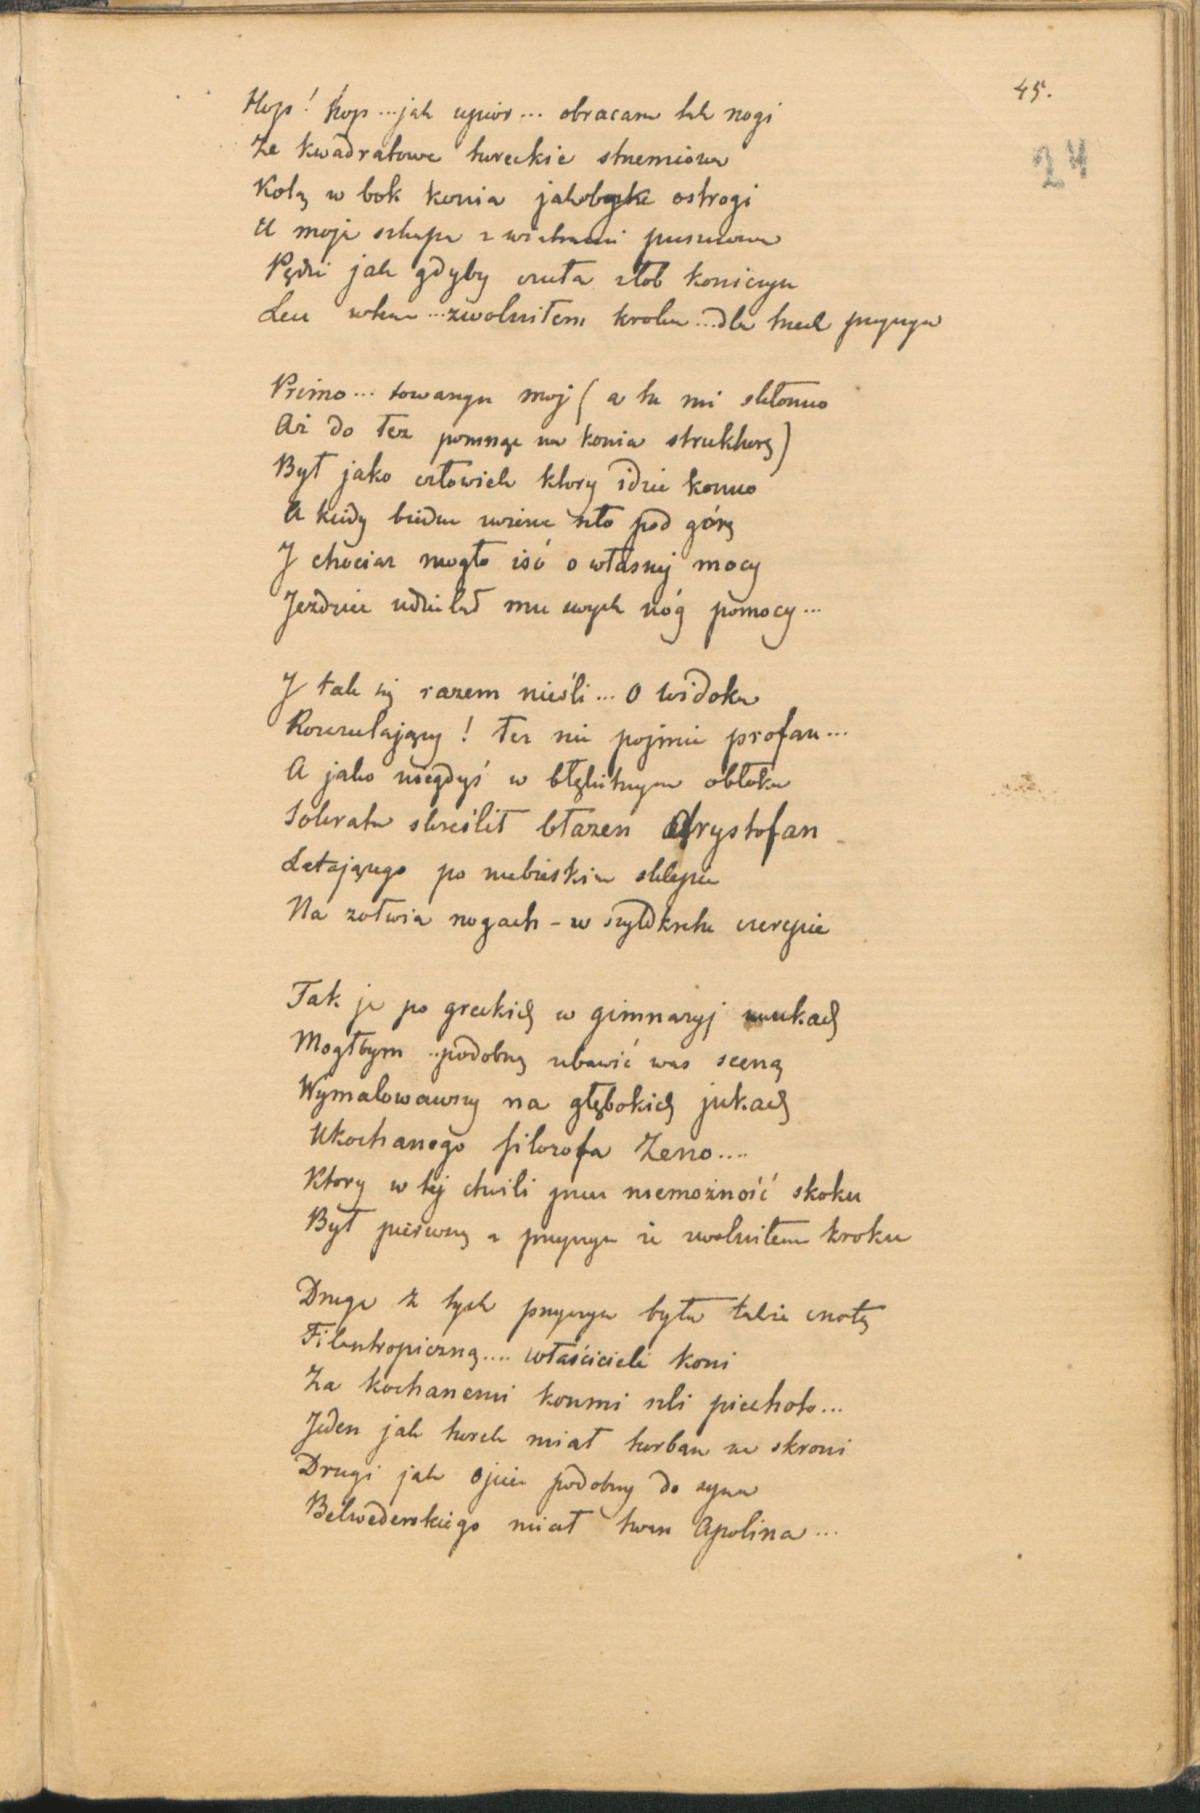 45.
24
Hop! hop... jak upiór... obracam tak nogi
Że kwadratowe tureckie strzemiona
Kolą w bok konia jakoby ostrogi
A moja szkapa z wichrami puszczona
Pędzi jak gdyby czuła żłób koniczyn
Lecz wkrótce... zwolniłem kroku... dla trzech przyczyn

Primo... towarzysz moj (a tu mi skłonno
Aż do łez pomnąc na konia strukturę)
Był jako człowiek ktory idzie konno
A kiedy biedne zwierze szło pod górę
I chociaz mogło iśó o własnej mocy
Jezdziec udzielał mu swych nóg pomocy...

I tak się razem nieśli... O widoku
Rozczulający! łez nie pojmie profan...
A jako niegdyś w błękitnym obłoku
Sokrata skreślił błazen Arystofan
Latającego po niebieskim sklepie
Na zołwia nogach – w szyldkretu czerepie

Tak ja po greckich w gimnazyj naukach
Mogłbym .. podobną ubawić was sceną
Wymalowawszy na głębokich jukach
Ukochanego filozofa Zeno....
Ktory w tej chwili przez niemożność skoku
Był pierwszą z przyczyn że zwolniłem kroku

Druga z tych przyczyn była także cnotą
Filantropiczną.... właściciele koni
Za kochanemi konmi szli piechoto...
Jeden jak turek miał turban na skroni
Drugi jak ojciec podobny do syna
Belwederskiego miał twarz Apolina...